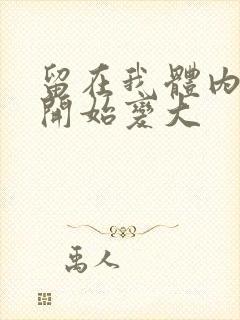 留在我體内
開始變大
禹人